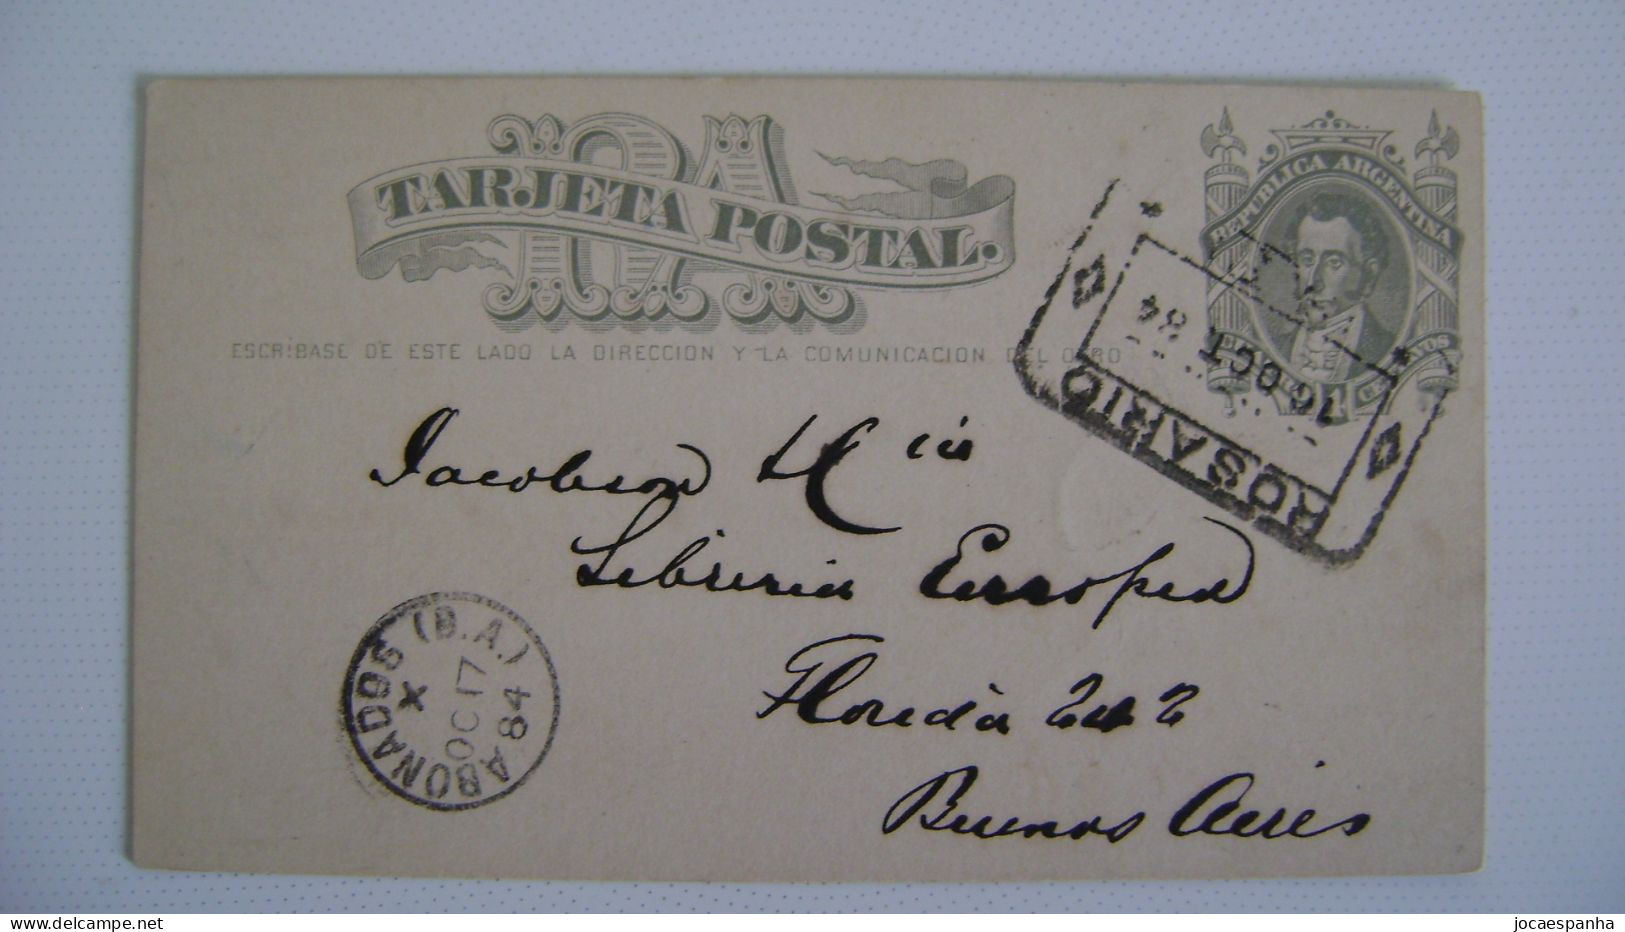 RA
TARJETA POSTAL.
REPUBLICA ARGENTINA
ESCRIBASE DE ESTE LADO LA DIRECCION Y LA COMUNICACION DEL OTRO
ROSARIO
16 OCT
84
Jacobsen & Cia
Libreria Europea
Florida 242
Buenos Aires
ABONADOS (B.A.)
X
OC 17
84
jocaespanha